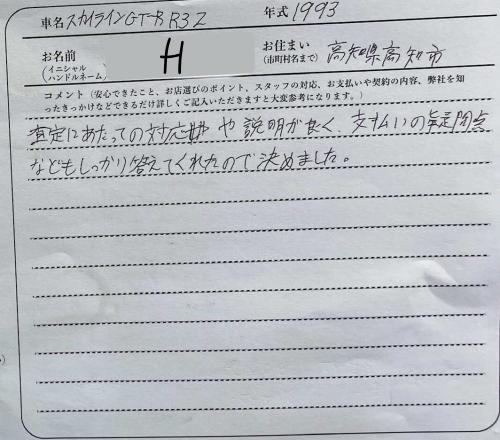 車名 スカイラインGT-R R32 年式 1993
お名前 (イニシャル ハンドルネーム) H お住まい (市町村名まで) 高知県高知市
コメント（安心できたこと、お店選びのポイント、スタッフの対応、お支払いや契約の内容、弊社を知
ったきっかけなどできるだけ詳しくご記入いただきますと大変参考になります。）
査定にあたっての対応 や説明が良く、支払いの 問点
などもしっかり答えてくれたので決めました。